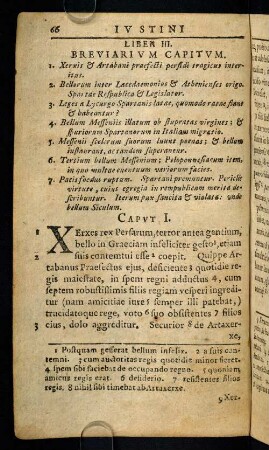 66 IVSTINI
LIBER III.
BREVIARIVM CAPITVM.
1. Xerxis & Artabani praefecti perfidi tragicus interitus.
2. Bellorum inter Lacedaemonios & Athenienses origo.
Spartae Respublica & Legislator.
3. Leges a Lycurgo Spartanis latae, quomodo ratae fiant
& habeantur?
4. Bellum Messeniis illatum ob stupratas virgines; &
spuriorum Spartanorum in Italiam migratio.
5. Messenii scelerum suorum luunt poenas; & bellum
instaurant, ac tandem superantur.
6. Tertium bellum Messenium; Peloponnesiorum item,
in quo multae eventuum varietate facies.
7. Patis foedus ruptum. Spartani premuntur. Periclis
virtute, cuius egregia in rempublicam merita describuntur.
Iterum pax sancita & violata: unde
bellum Siculum.
CAPVT I.
XERxes rex Persarum, terror antea gentium,
bello in Graeciam infeliciter gesto, etiam
2 suis contemtui esse coepit. Quippe Artabanus
Praefectus ejus, deficiente 3 quotidie regis
maiestate, in spem regni adductus 4, cum
septem robustissimis filiis regiam vesperi ingreditur
(nam amicitiae iure 5 semper illi patebat,)
trucidatoque rege, voto 6 suo obsistentes 7 filios
3 eius, dolo aggreditur. Securior 8 de Artaxerxe,
1 Postquam gesserat bellum infelix. 2 a suis contemni.
3 cum auctoritas regis quotidie minor fieret.
4 spem sibi faciebat de occupando regno. 5 quoniam
amicus regis erat. 6 desiderio. 7 resistentes filios
regis. 8 nihil sibi timebat ab Artaxerxe.